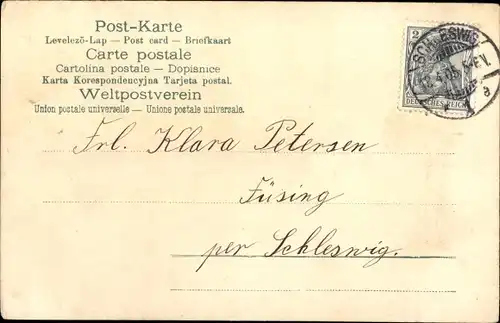 Post-Karte
Levelező-Lap — Post card — Briefkaart
Carte postale
Cartolina postale — Dopisnice
Karta Korespondencyjna Tarjeta postal.
Weltpostverein
Union postale universelle — Unione postale universale.
2
SCHLESWIG
DEUTSCHES REICH
a
Frl. Klara Petersen
Füsing
per Schleswig.